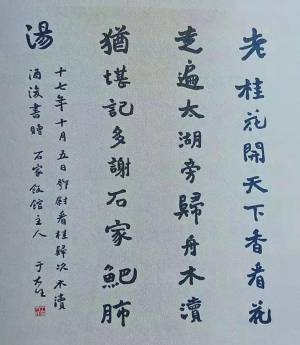 老桂花開天下香看花
走遍太湖旁歸舟木瀆
猶堪記多謝石家䰾肺
湯
十七年十月五日鄧尉看桂歸次木瀆
酒後書贈 石家飯館主人 于右任